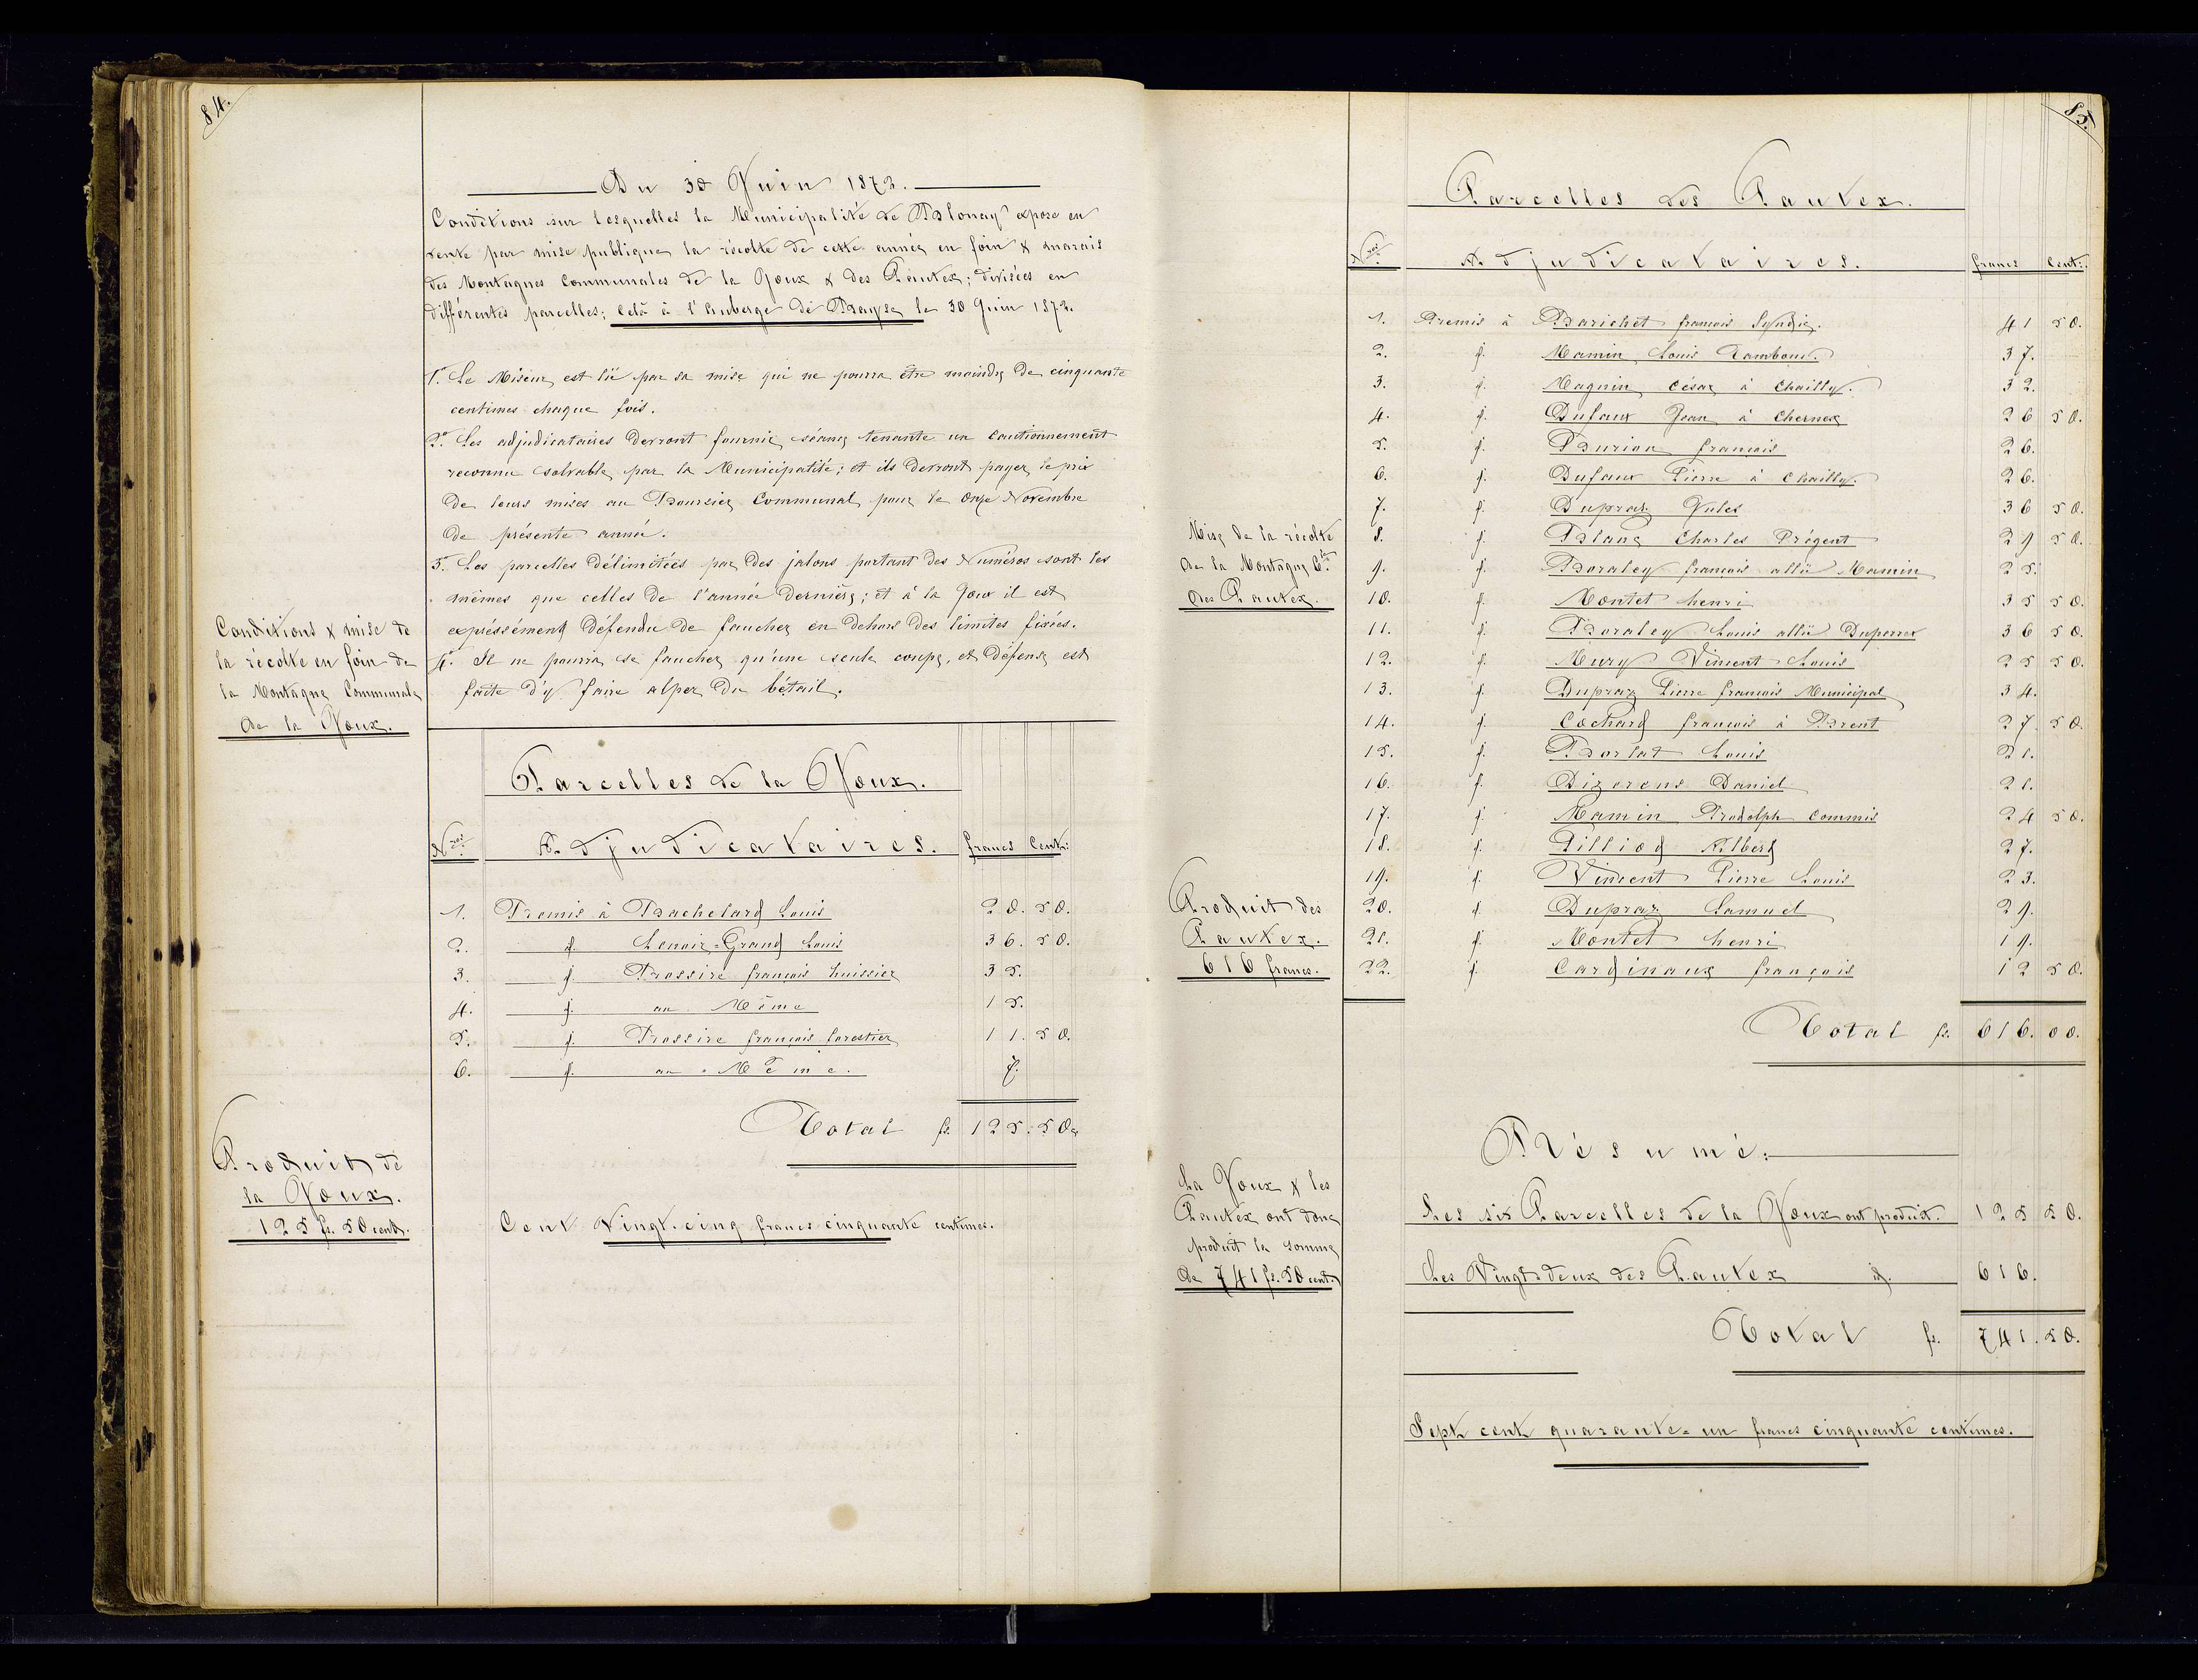 84.
Du 30 Juin 1872.
Conditions sur lesquelles la Municipalité de Blonay expose en
vente par mise publique la récolte de cette année en foin & marais
des Montagnes Communales de la Joux & des Pautex; divisées en
différentes parcelles; celà à l'auberge de Brayse le 30 Juin 1872.
1° Le Miseur est lié par sa mise qui ne pourra être moindre de cinquante
centimes chaque fois.
2° Les adjudicataires devront fournir séance tenante un cautionnement
reconnu solvable par la Municipalité; et ils devront payer le prix
de leurs mises au Boursier Communal pour le onze Novembre
de présente année.
3° Les parcelles délimitées par des jalons portant des Numéros sont les
mêmes que celles de l'année dernière; et à la Joux il est
expréssément défendu de faucher en dehors des limites fixées.
4° Il ne pourra se faucher qu'une seule coupe, et défense est
faite d'y faire alper du bétail.
Conditions & mise de
la récolte en foin de
la Montagne Communale
de la Joux.
Parcelles de la Joux.
Nros Adjudicataires. francs Cent:
1. Remis à Bachelard Louis 20. 50.
2. d. Lenoir=Grand Louis 36. 50.
3. d. Brossire françois huissier 35.
4. d. au Même 15.
5. d. Brossire françois forestier 11. 50.
6. d. au Même. 7.
Total fs. 125. 50.
Produit de
la Joux.
125 fs. 50 cent.
Cent Vingt-cinq francs cinquante centimes.
85.
Parcelles des Pautex.
Nros Adjudicataires. francs Cent:
1. Remis à Barichet françois Syndic. 41 50.
2. d. Mamin Louis Tambour. 37.
3. d. Maguin César à Chailly. 32.
4. d. Dufaux Jean à Chernex 26 50.
5. d. Burion françois 26.
6. d. Dufaux Pierre à Chailly. 26.
7. d. Dupraz Jules 36 50.
8. d. Blanc Charles Régent 29 50.
9. d. Boraley françois allié Mamin 25.
10. d. Montet henri 35 50.
11. d. Boraley Louis allié Duperrex 36 50.
12. d. Mury Vincent Louis 25 50.
13. d. Dupraz Pierre françois Municipal 34.
14. d. Cochard françois à Brent 27 50.
15. d. Borlat Louis 21.
16. d. Dizerens Daniel 21.
17. d. Mamin Rodolph commis 24 50.
18. d. Gilliod Albert 27.
19. d. Vincent Pierre Louis 23.
20. d. Dupraz Samuel 29.
21. d. Montet henri 19.
22. d. Cardinaux françois 12 50.
Mise de la récolte
de la Montagne Cle
des Pautex.
Produit des
Pautex.
616 francs.
Total fs. 616. 00.
Résumé.
Les six Parcelles de la Joux ont produit. 125 50.
Les Vingt=deux des Pautex id. 616.
Total fs. 741. 50.
La Joux & les
Pautex ont donc
produit la somme
de 741 fs. 50 cent.
Sept cent quarante=un francs cinquante centimes.